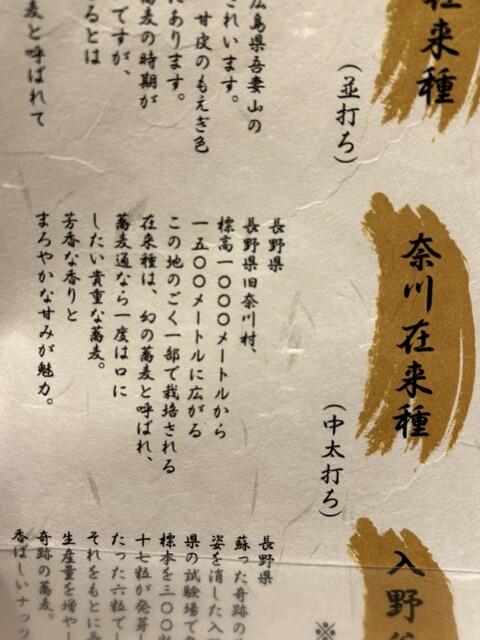 在来種
（並打ち）
広島県吾妻山の
されいます。
甘皮のもえぎ色
にあります。
蕎麦の時期が
ですが、
るとは
麦と呼ばれて
奈川在来種
（中太打ち）
長野県
長野県旧奈川村、
標高一〇〇〇メートルから
一五〇〇メートルに広がる
この地のごく一部で栽培される
在来種は、幻の蕎麦と呼ばれ、
蕎麦通なら一度は口に
したい貴重な蕎麦。
芳香な香りと
まろやかな甘みが魅力。
入野
※
長野県
蘇った奇跡の
姿を消した入
県の試験場で
標本を三〇〇
十七粒が発芽
たった六粒で
それをもとに
生産量を増やし
奇跡の蕎麦。
香ばしいナッツ